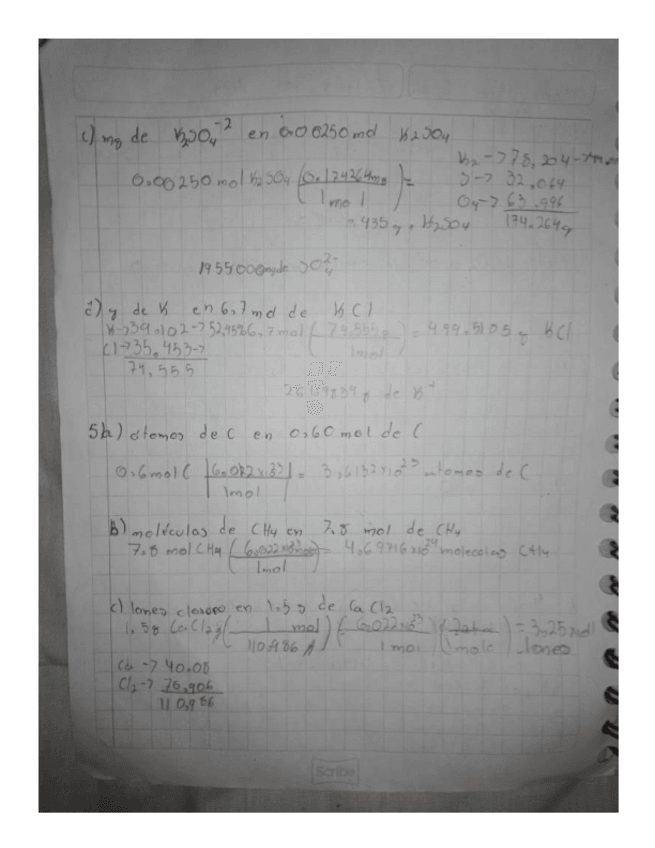 c) mg de K2SO4-2 en 0.00250 mol K2SO4
K2 -> 78,204
0.00250 mol K2SO4 (0.174264mg / 1mol) =
S -> 32,064
O4 -> 63,996
174.264g
= 435 g, K2SO4
1955000mg de SO4 2-
g de K en 6,7 mol de KCl
K->39.102->
6,7mol (74,555g / 1mol) = 499.5105 g KCl
Cl->35.453->
74,555
g de K+
5a) átomos de C en 0,60 mol de C
0,6mol C |6.022x10 23 / 1mol| = 3,6132x10 23 atomos de C
b) moléculas de CH4 en 7.8 mol de CH4
7.8 mol CH4 (6.022x10 23 / 1mol) = 4,69716x10 24 moleculas CH4
c) Iones cloruro en 1.5 g de CaCl2
1.5g CaCl2 (1 mol / 110.986 g) (6.022x10 23 / 1 mol) = 3,25
Iones
Ca -> 40.08
Cl2 -> 70,906
110,986
Scribe